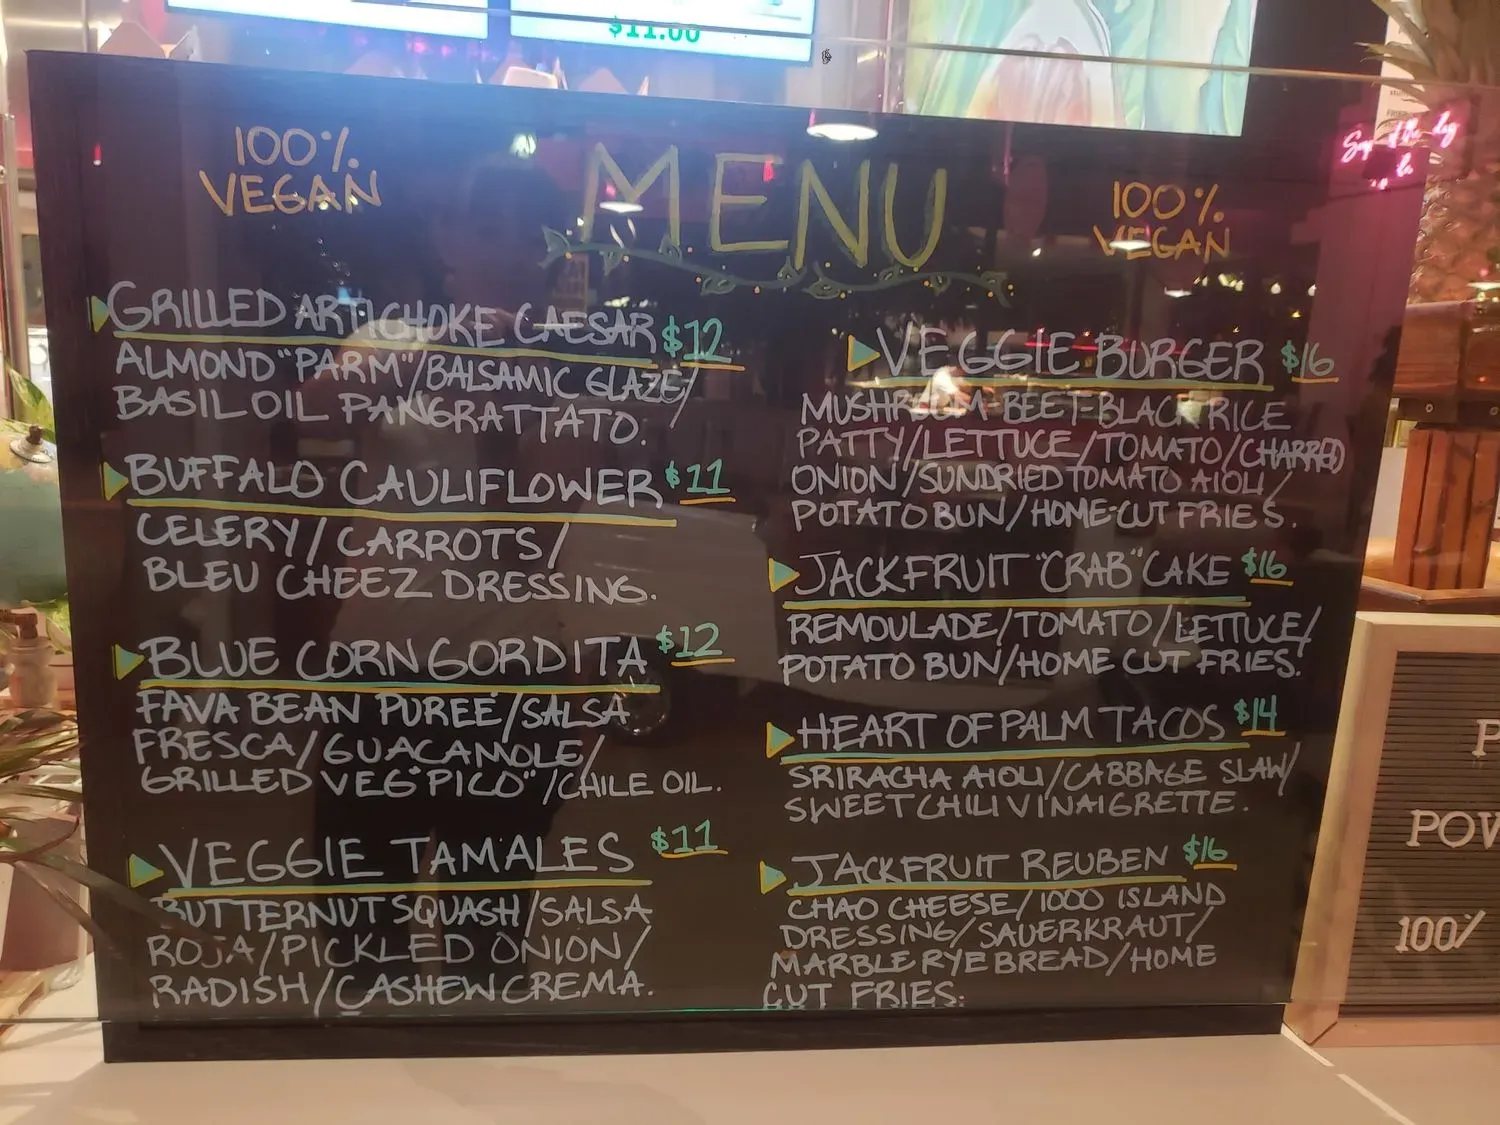 $11.00
100%
VEGAN
MENU
100%
VEGAN
GRILLED ARTICHOKE CAESAR $12
ALMOND "PARM"/BALSAMIC GLAZE/
BASIL OIL PANGRATTATO.
BUFFALO CAULIFLOWER $11
CELERY/CARROTS/
BLEU CHEEZ DRESSING.
BLUE CORN GORDITA $12
FAVA BEAN PUREE/SALSA
FRESCA/GUACAMOLE/
GRILLED VEG "PICO"/CHILE OIL.
VEGGIE TAMALES $11
BUTTERNUT SQUASH/SALSA
ROJA/PICKLED ONION/
RADISH/CASHEW CREMA.
VEGGIE BURGER $16
MUSHROOM-BEET-BLACK RICE
PATTY/LETTUCE/TOMATO/CHARRED
ONION/SUNDRIED TOMATO AIOLI/
POTATO BUN/HOME-CUT FRIES.
JACKFRUIT "CRAB" CAKE $16
REMOULADE/TOMATO/LETTUCE/
POTATO BUN/HOME CUT FRIES.
HEART OF PALM TACOS $14
SRIRACHA AIOLI/CABBAGE SLAW/
SWEET CHILI VINAIGRETTE.
JACKFRUIT REUBEN $16
CHAO CHEESE/1000 ISLAND
DRESSING/SAUERKRAUT/
MARBLE RYE BREAD/HOME
CUT FRIES.
P
POW
100%